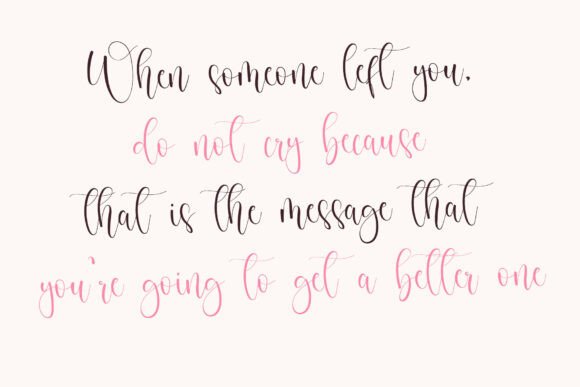 When someone left you,
do not cry because
that is the message that
you're going to get a better one